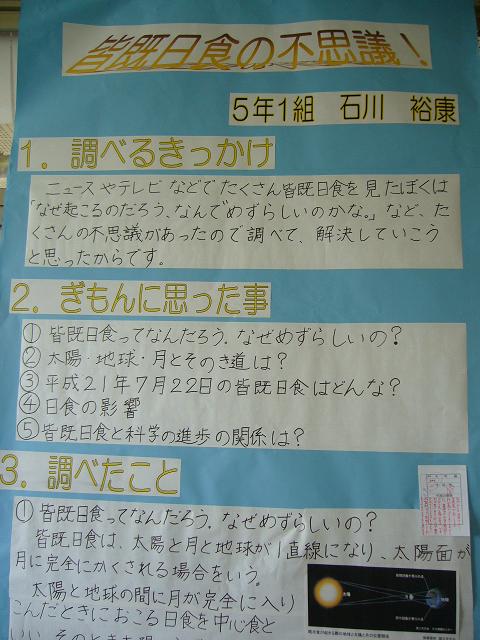 皆既日食の不思議!
5年1組 石川 裕康
1. 調べるきっかけ
ニュースやテレビなどでたくさん皆既日食を見たぼくは
「なぜ起こるのだろう、なんでめずらしいのかな。」など、た
くさんの不思議があったので調べて、解決していこう
と思ったからです。
2. ぎもんに思った事
① 皆既日食ってなんだろう。なぜめずらしいの?
② 太陽・地球・月とそのき道は?
③ 平成21年7月22日の皆既日食はどんな?
④ 日食の影響
⑤ 皆既日食と科学の進歩の関係は?
3. 調べたこと
① 皆既日食ってなんだろう。なぜめずらしいの?
皆既日食は、太陽と月と地球が1直線になり、太陽面が
月に完全にかくされる場合をいう。
太陽と地球の間に月が完全に入り
こんだときにおこる日食を中心食と
太陽
月
地球